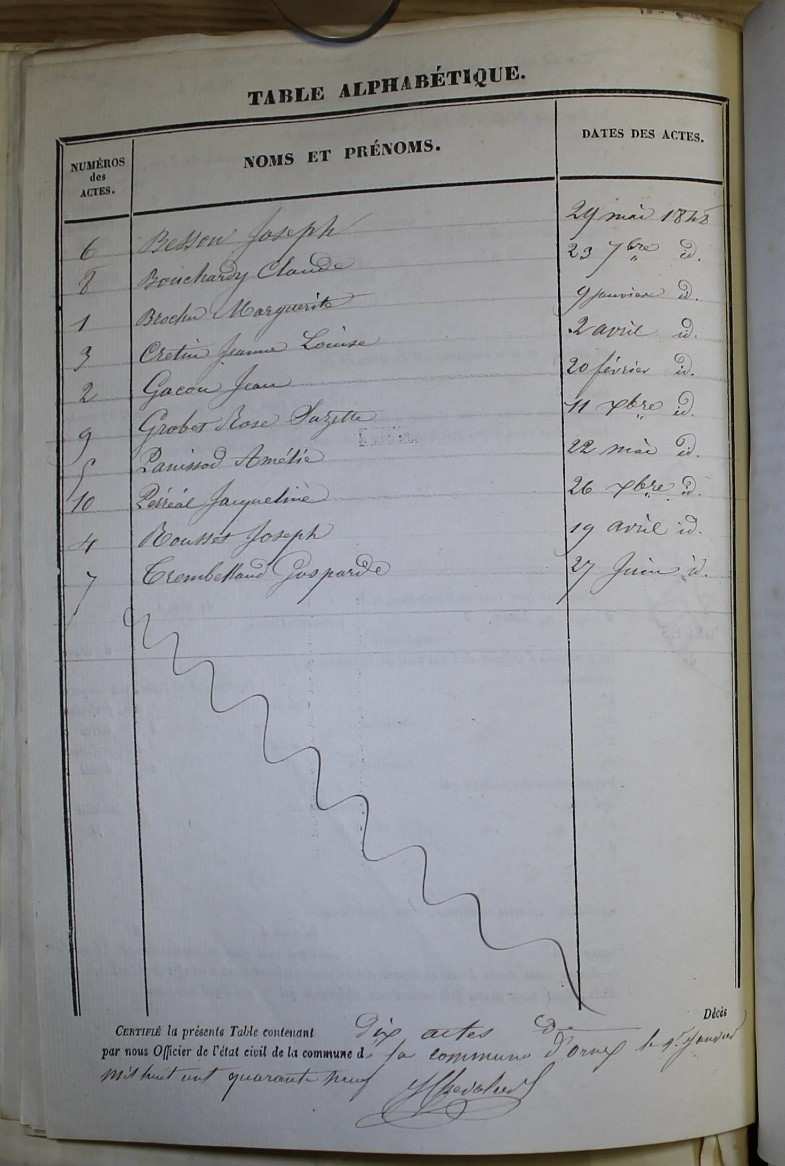 TABLE ALPHABÉTIQUE.
NUMÉROS des ACTES. NOMS ET PRÉNOMS. DATES DES ACTES.
6 Besson Joseph 29 mai 1848
8 Bouchardy Claude 23 7bre id.
1 Brochu Marguerite 9 janvier id.
3 Cretin Jeanne Louise 2 avril id.
2 Gacon Jean 20 février id.
9 Grobet Rose Suzette 11 xbre id.
5 Panissod Amélie 22 mai id.
10 Perréal Jacqueline 26 xbre id.
4 Rousset Joseph 19 avril id.
7 Trembelland Gasparde 27 Juin id.
Décès
CERTIFIÉ la présente Table contenant dix actes de
par nous Officier de l'état civil de la commune d la commune d'ornex le 1er janvier
mil huit cent quarante neuf